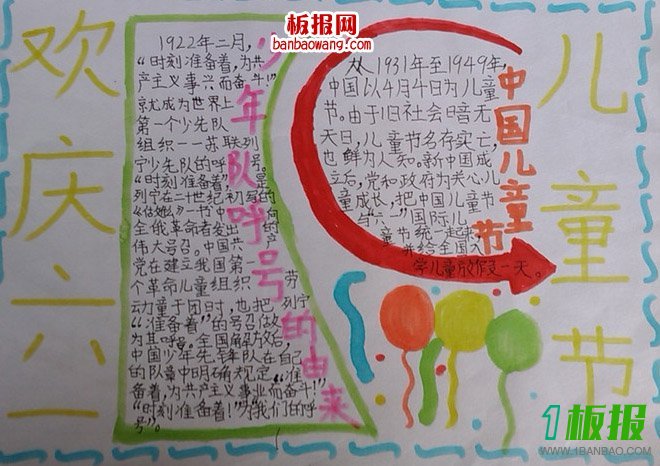 欢庆六一
儿童节
板报网
banbaowang.com
少年队呼号的由来
1922年二月,
“时刻准备着,为共
产主义事兴而奋斗!”
就成为世界上
第一个少先队
组织——苏联列
宁少先队的呼号。
“时刻准备着”,是
列宁在二十世纪初写的
《怎么办》一书中向
全俄革命者发出的
伟大号召。中国共产
党在建立我国第一
个革命儿童组织劳
动童子团时,也把列宁
“准备着”的号召做
为其呼号。全国解放后,
中国少年先锋队在自己
的队章中明确规定“准
备着,为共产主义事业而奋斗!”
“时刻准备着!”为我们的呼
号”。
中国儿童节
从1931年至1949年,
中国以4月4日为儿童
节。由于旧社会暗无
天日,儿童节名存实亡,
也鲜为人知。新中国成
立后,党和政府为关心儿
童成长,把中国儿童节
与“六一”国际儿
童节统一起来,
并给全国入
学儿童放假一天。
1板报
WWW.1BANBAO.COM